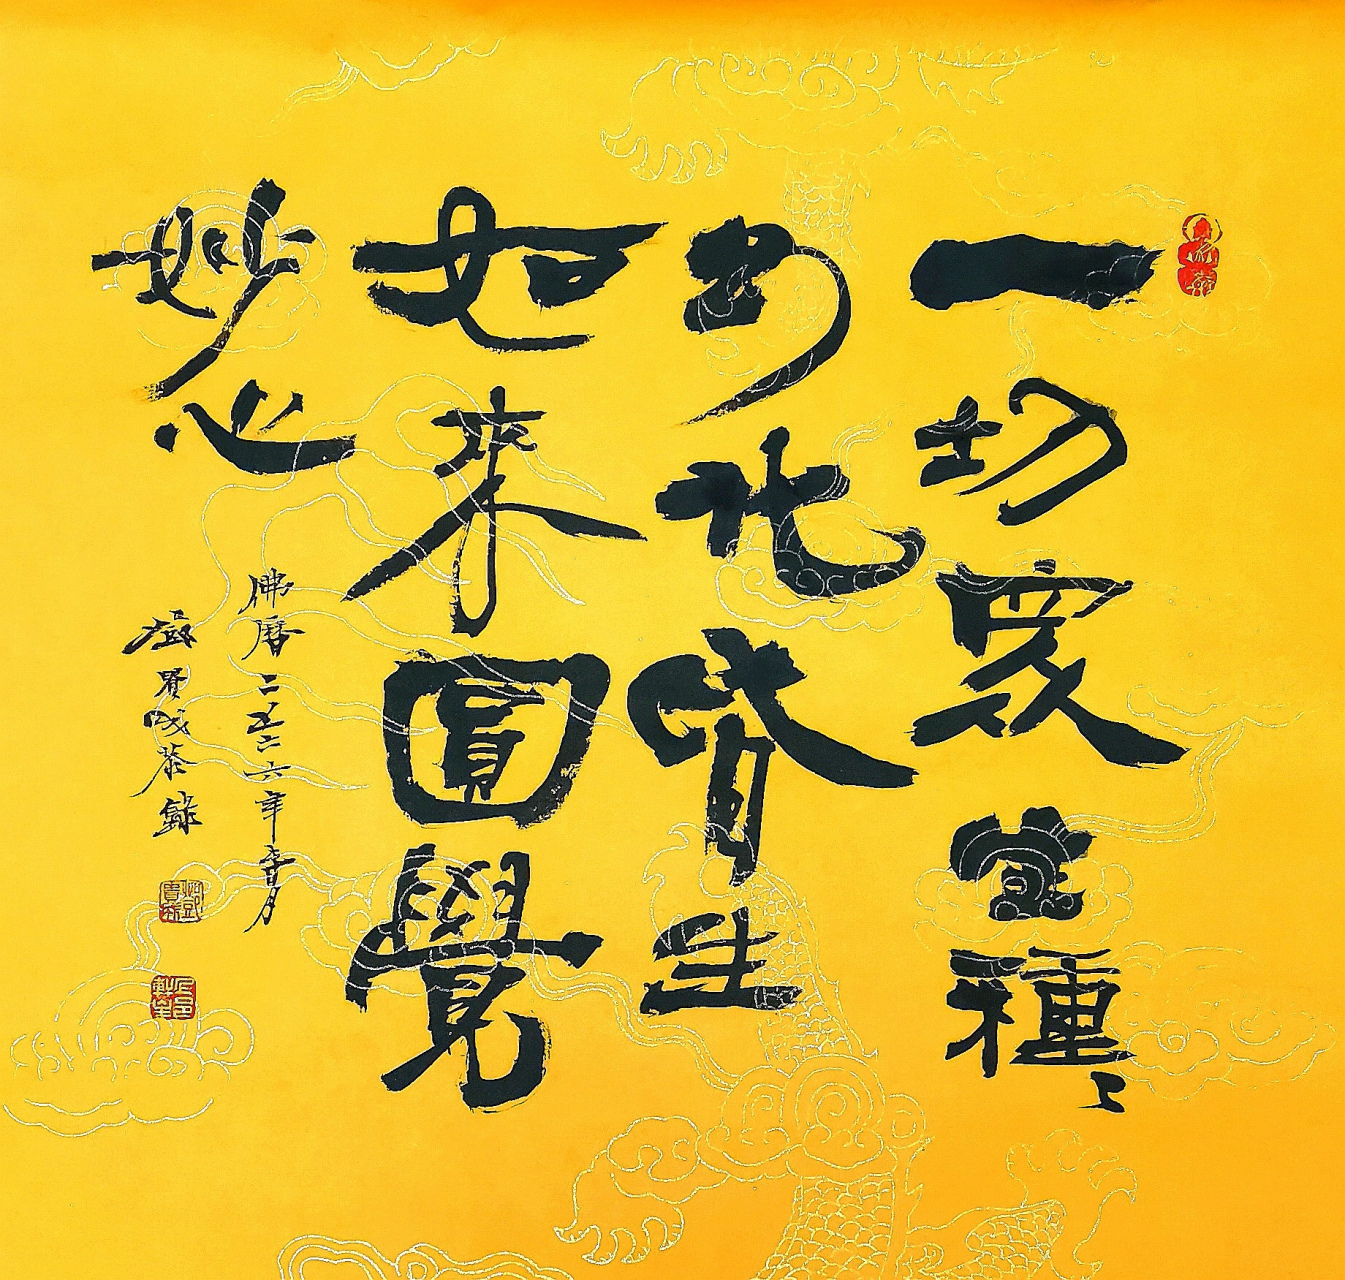 一切衆生種種
幻化皆生
如來圓覺
妙心
佛曆二五六六年十二月
鄧賢成恭錄